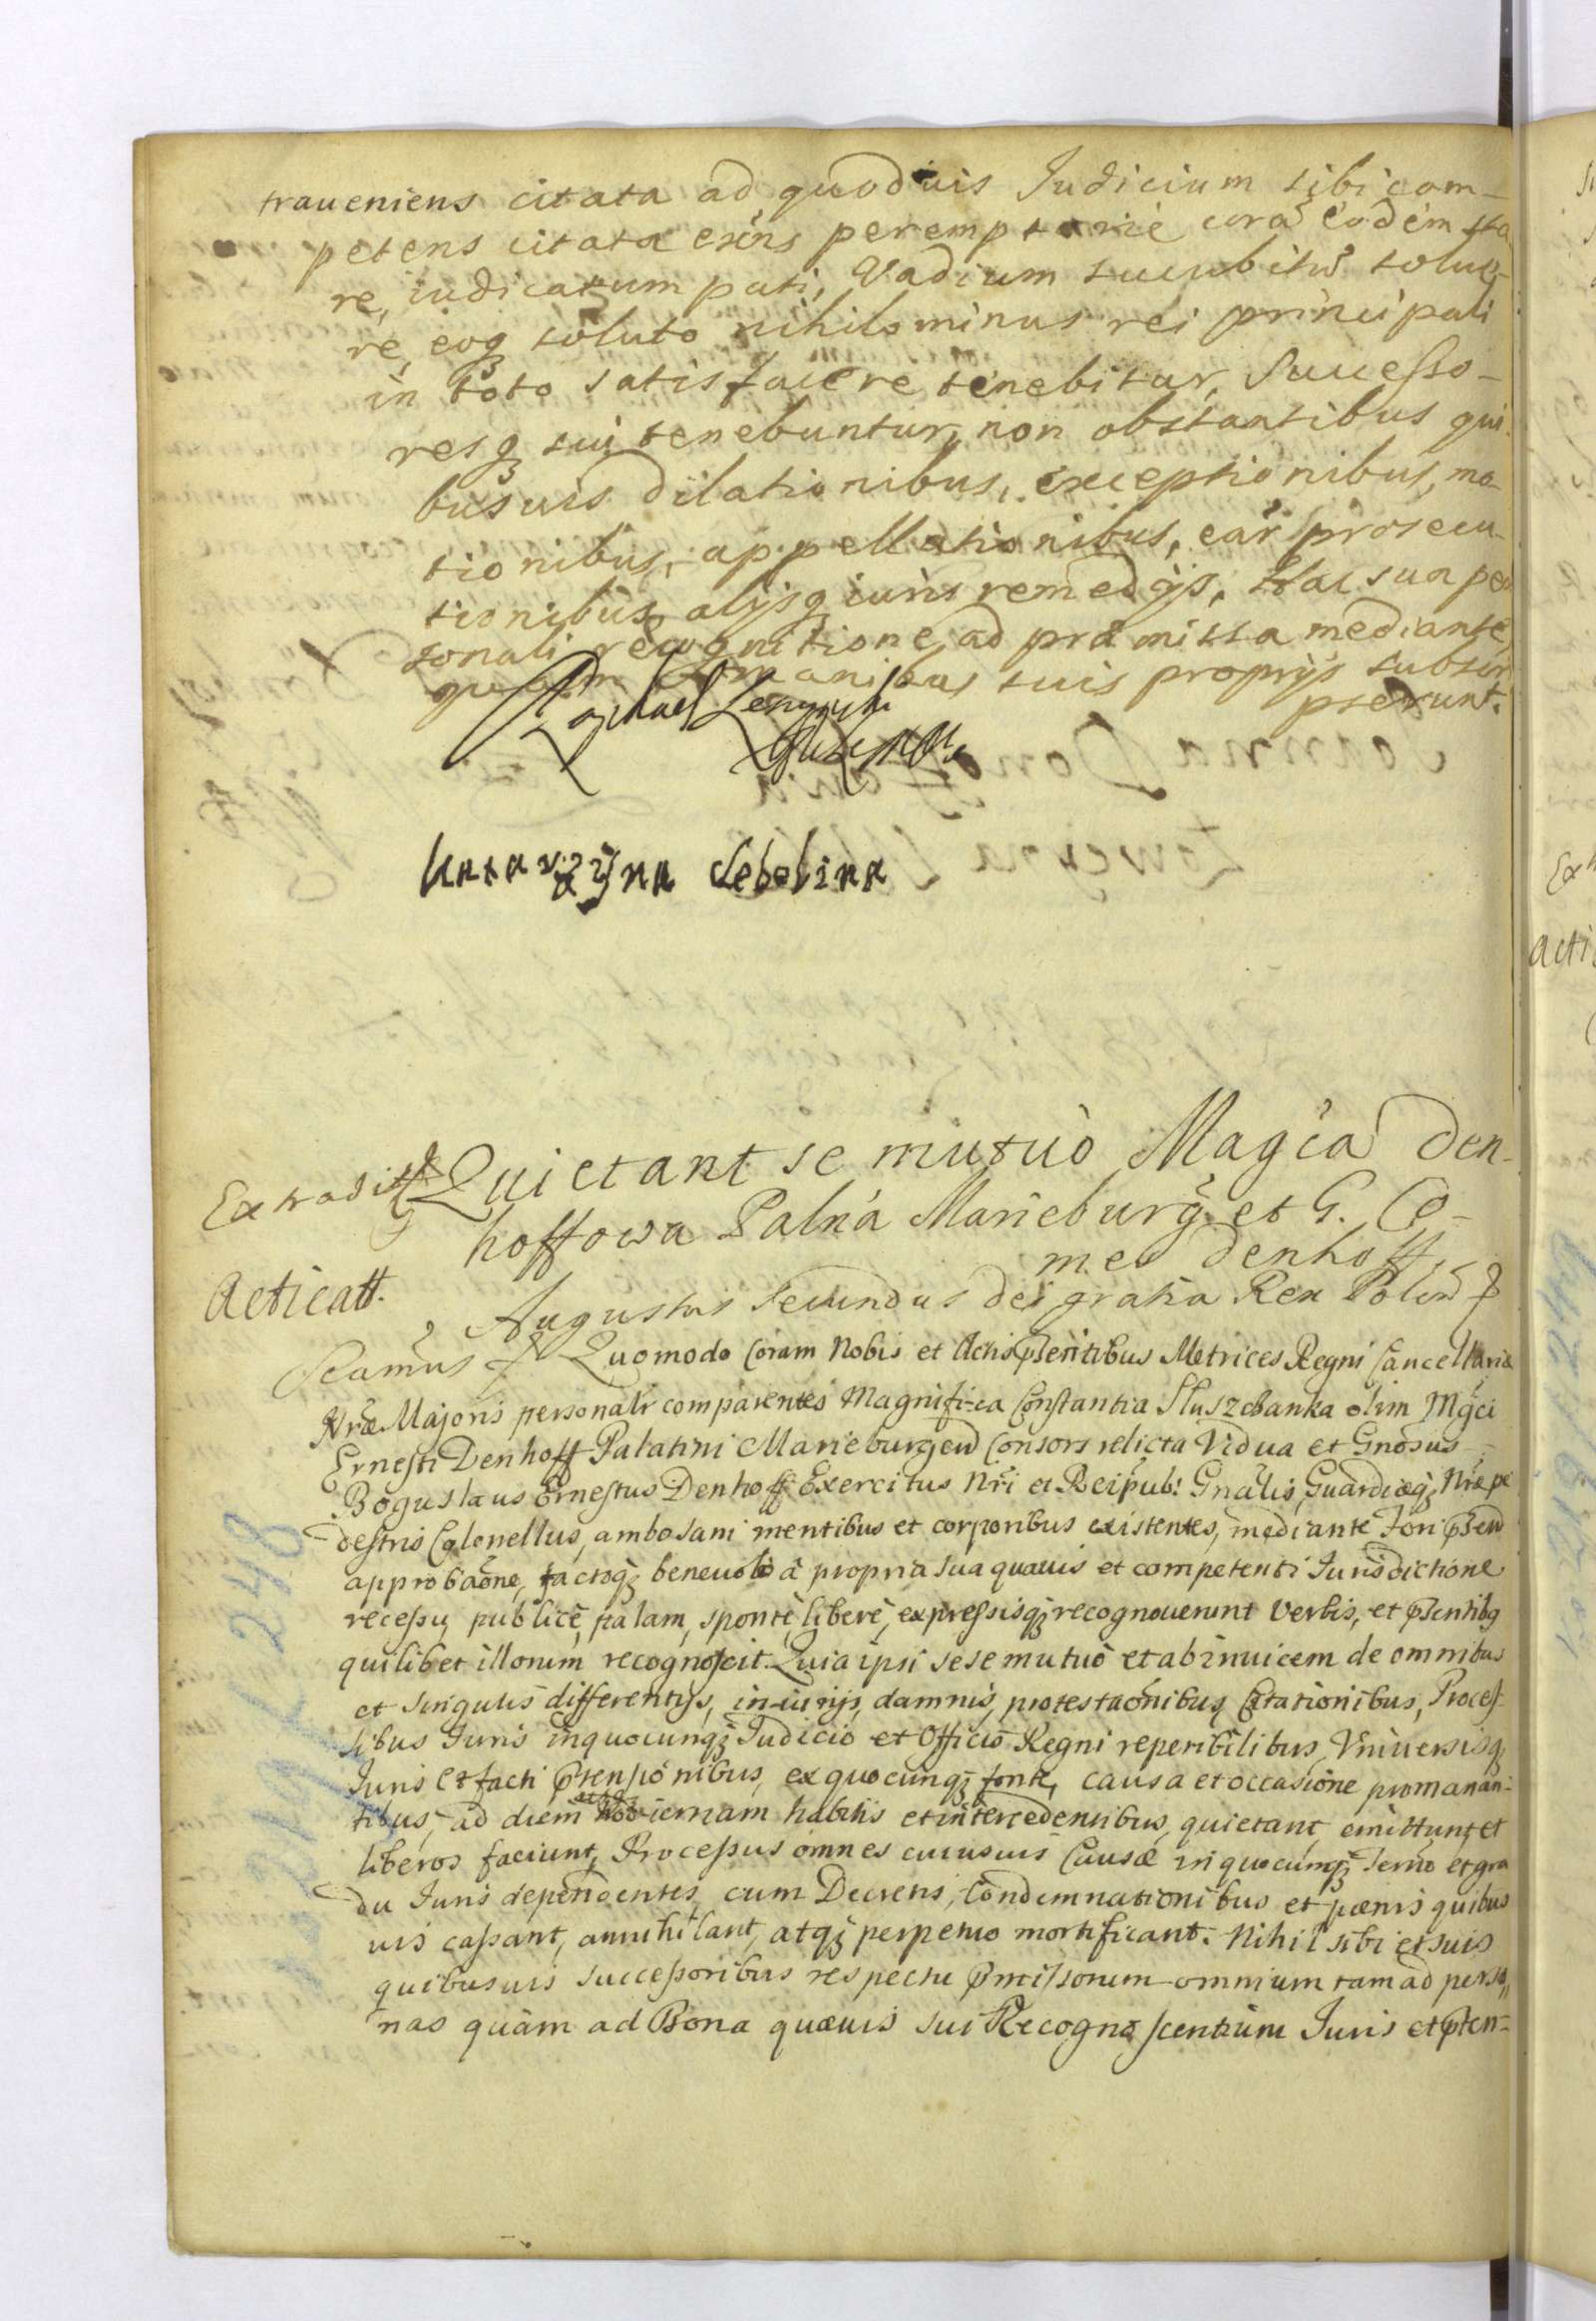 traueniens citata ad quoduis Judicium sibi com-
petens citata exñs peremptorie corã eodem sta
re, iudicatum pati, Vadium succubitũ solue-
re, eoq; soluto nihilominus rei principali
in toto satisfacere tenebitur, Successo-
resq; sui tenebuntur, non obstantibus qui
busuis dilationibus, exceptionibus, mo-
tionibus, appellationibus, earũ prosecu-
tionibus, alijsq; iuris remedijs. Hac sua per
sonali recognitione ad præmissa mediante,
manibus suis proprijs subscri
pserunt.
Katarzyna Lebelina
Extradit
Quietant se mutuò Magĉa Den-
hoffowa Palna Marieburg: et G. Co-
mes Denhoff
Acticatt.
Augustus Secundus Dei gratia Rex Polon
Quomodo Coram Nobis et Actis præsentibus Metrices Regni Cancellariæ
Nræ Majoris personalr comparentes Magnifica Constantia Sluszczanka olim Mgci
Ernesti Denhoff Palatini Marieburgen Consors relicta Vidua et Gnosus
Boguslaus Ernestus Denhoff Exercitus Nri et Reipub: Gnalis, Guardiæq; Nræ pe
destris Colonellus, ambo sani mentibus et corporibus existentes, mediante Fori pñtis
approbaõne, factoq; beneuolo à propria sua quauis et competenti Jurisdictione
recessu, publicè, palam, spontè, liberè, expressisq; recognouerunt Verbis, et pñtibq
quilibet illorum recognoscit. Quia ipsi sese mutuò et abinuicem de omnibus
et singulis differentijs, iniurijs, damnis, protestaõnibus, Citationibus, Proces-
sibus Juris inquocunq; Judicio et Officio Regni reperibilibus, Vniuersisq;
Juris et facti prætensionibus, ex quocunq; fonte, causa et occasione promanan-
tibus, ad diem hodiernam habitis et intercedentibus, quietant, emittunt et
liberos faciunt, Processus omnes cuiusuis Causæ in quocunq; termino et gra
du Juris dependentes, cum Decretis, Condemnationibus et pænis quibus
uis cassant, annihilant, atq; perpetuo mortificant. Nihil sibi et suis
quibusuis successoribus respectu præmissorum omnium tam ad perso,,
nas quàm ad Bona quæuis sui Recognoscentium Juris et præten-